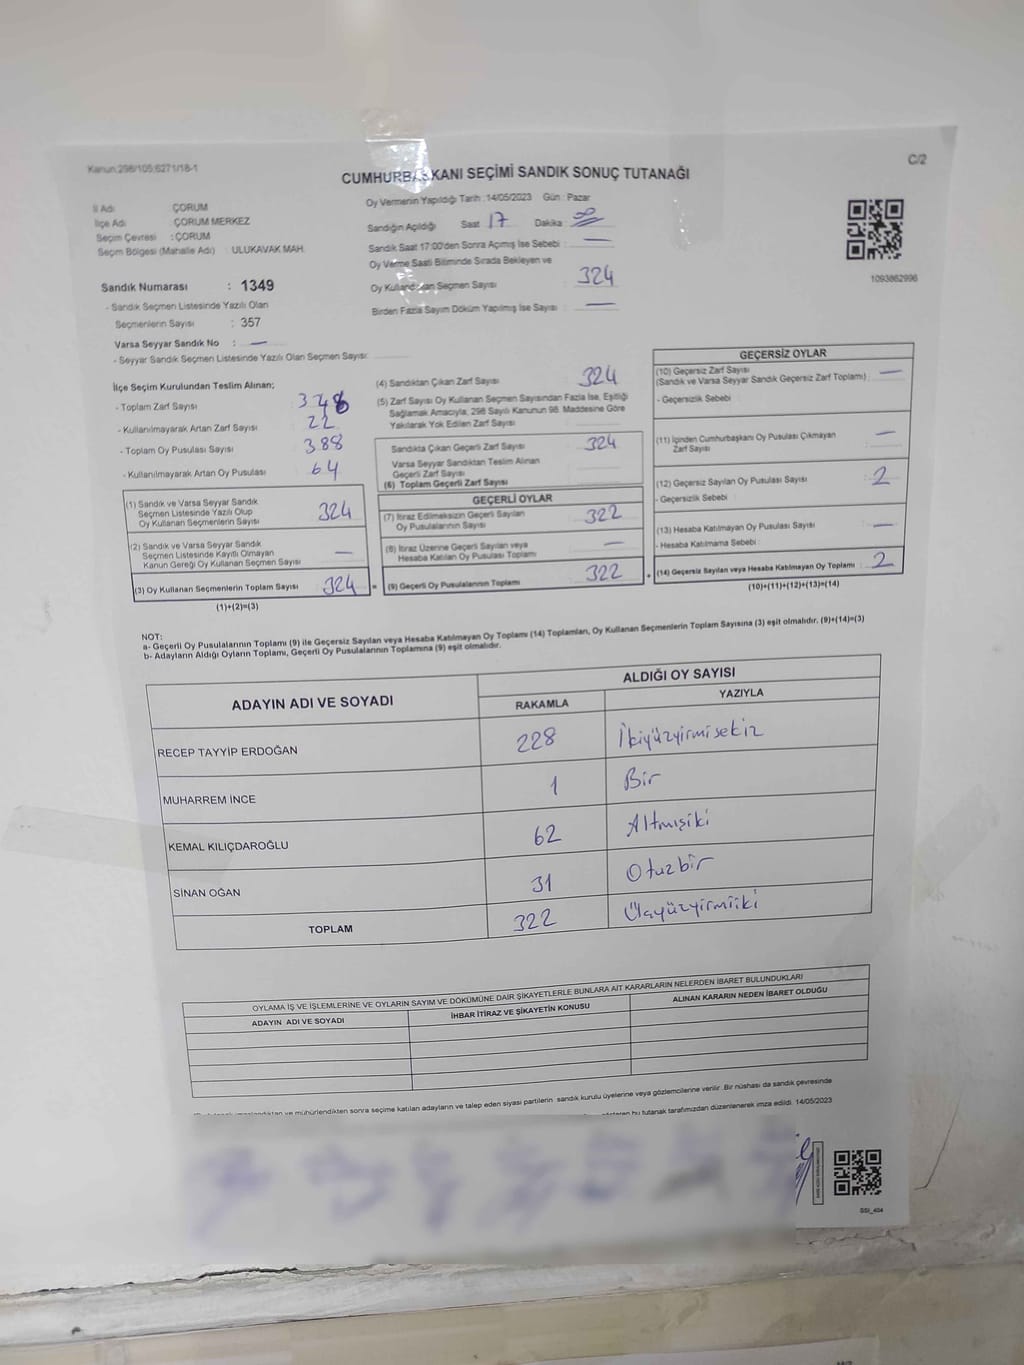 Kanun:298/105;6271/18-1
C/2
CUMHURBAŞKANI SEÇİMİ SANDIK SONUÇ TUTANAĞI
İl Adı : ÇORUM
İlçe Adı : ÇORUM MERKEZ
Seçim Çevresi : ÇORUM
Seçim Bölgesi (Mahalle Adı) : ULUKAVAK MAH.
Sandık Numarası : 1349
- Sandık Seçmen Listesinde Yazılı Olan
Seçmenlerin Sayısı : 357
Varsa Seyyar Sandık No : —
- Seyyar Sandık Seçmen Listesinde Yazılı Olan Seçmen Sayısı:
Oy Vermenin Yapıldığı Tarih : 14/05/2023 Gün : Pazar
Sandığın Açıldığı Saat 17 Dakika :
Sandık Saat 17:00'den Sonra Açımış İse Sebebi : —
Oy Verme Saati Bitiminde Sırada Bekleyen ve
Oy Kullandırılan Seçmen Sayısı : 324
Birden Fazla Sayım Döküm Yapılmış İse Sayısı : —
1093862996
İlçe Seçim Kurulundan Teslim Alınan;
- Toplam Zarf Sayısı :
- Kullanılmayarak Artan Zarf Sayısı : 22
- Toplam Oy Pusulası Sayısı : 388
- Kullanılmayarak Artan Oy Pusulası : 64
(1) Sandık ve Varsa Seyyar Sandık
Seçmen Listesinde Yazılı Olup
Oy Kullanan Seçmenlerin Sayısı : 324
(2) Sandık ve Varsa Seyyar Sandık
Seçmen Listesinde Kayıtlı Olmayan
Kanun Gereği Oy Kullanan Seçmen Sayısı : —
(3) Oy Kullanan Seçmenlerin Toplam Sayısı : 324
(1)+(2)=(3)
(4) Sandıktan Çıkan Zarf Sayısı : 324
(5) Zarf Sayısı Oy Kullanan Seçmen Sayısından Fazla İse, Eşitliği
Sağlamak Amacıyla, 298 Sayılı Kanunun 98. Maddesine Göre
Yakılarak Yok Edilen Zarf Sayısı :
Sandıkta Çıkan Geçerli Zarf Sayısı : 324
Varsa Seyyar Sandıktan Teslim Alınan
Geçerli Zarf Sayısı :
(6) Toplam Geçerli Zarf Sayısı :
GEÇERLİ OYLAR
(7) İtiraz Edilmeksizin Geçerli Sayılan
Oy Pusulalarının Sayısı : 322
(8) İtiraz Üzerine Geçerli Sayılan veya
Hesaba Katılan Oy Pusulası Toplamı : —
= (9) Geçerli Oy Pusulalarının Toplamı : 322
GEÇERSİZ OYLAR
(10) Geçersiz Zarf Sayısı
(Sandık ve Varsa Seyyar Sandık Geçersiz Zarf Toplamı) : —
- Geçersizlik Sebebi
(11) İçinden Cumhurbaşkanı Oy Pusulası Çıkmayan
Zarf Sayısı : —
(12) Geçersiz Sayılan Oy Pusulası Sayısı : 2
- Geçersizlik Sebebi
(13) Hesaba Katılmayan Oy Pusulası Sayısı : —
- Hesaba Katılmama Sebebi :
+ (14) Geçersiz Sayılan veya Hesaba Katılmayan Oy Toplamı : 2
(10)+(11)+(12)+(13)=(14)
NOT:
a- Geçerli Oy Pusulalarının Toplamı (9) ile Geçersiz Sayılan veya Hesaba Katılmayan Oy Toplamı (14) Toplamları, Oy Kullanan Seçmenlerin Toplam Sayısına (3) eşit olmalıdır. (9)+(14)=(3)
b- Adayların Aldığı Oyların Toplamı, Geçerli Oy Pusulalarının Toplamına (9) eşit olmalıdır.
ADAYIN ADI VE SOYADI
ALDIĞI OY SAYISI
RAKAMLA YAZIYLA
RECEP TAYYİP ERDOĞAN 228 İkiyüzyirmisekiz
MUHARREM İNCE 1 Bir
KEMAL KILIÇDAROĞLU 62 Altmışiki
SİNAN OĞAN 31 Otuzbir
TOPLAM 322 Üçyüzyirmiiki
OYLAMA İŞ VE İŞLEMLERİNE VE OYLARIN SAYIM VE DÖKÜMÜNE DAİR ŞİKAYETLERLE BUNLARA AİT KARARLARIN NELERDEN İBARET BULUNDUKLARI
ADAYIN ADI VE SOYADI İHBAR İTİRAZ VE ŞİKAYETİN KONUSU ALINAN KARARIN NEDEN İBARET OLDUĞU
ve mühürlendikten sonra seçime katılan adayların ve talep eden siyasi partilerin sandık kurulu üyelerine veya gözlemcilerine verilir. Bir nüshası da sandık çevresinde
bu tutanak tarafımızdan düzenlenerek imza edildi. 14/05/2023
SSI_404